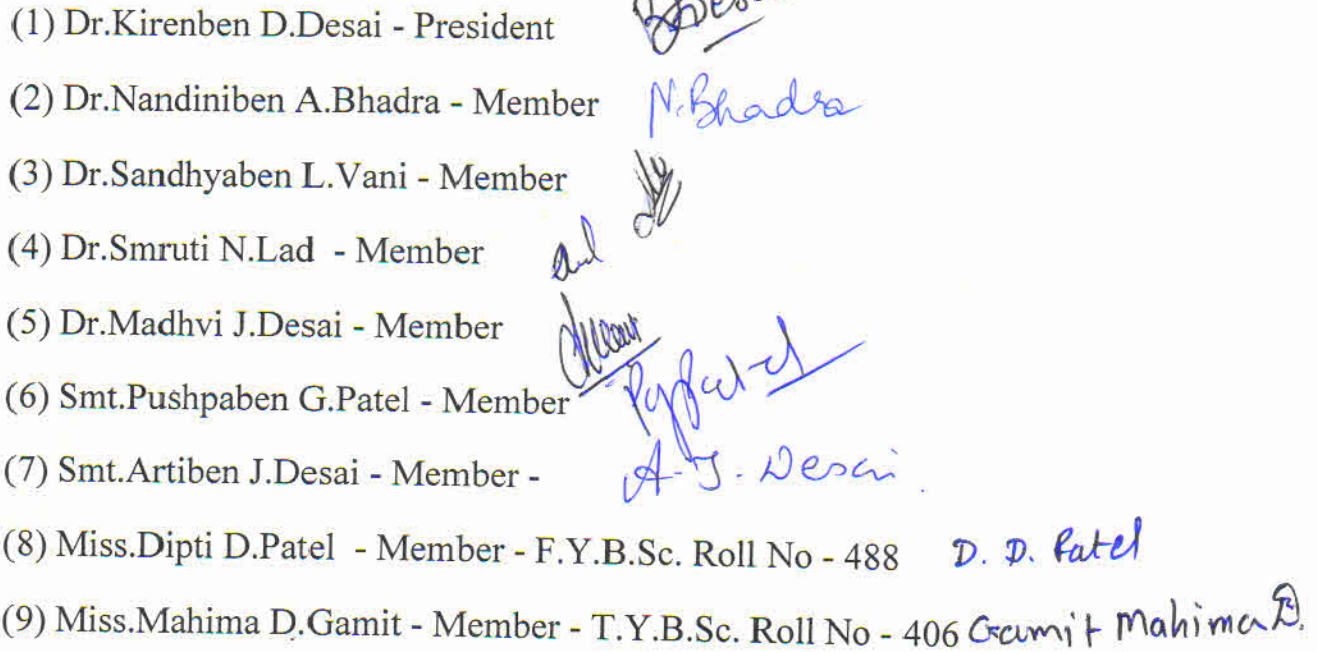 (1) Dr.Kirenben D.Desai - President
(2) Dr.Nandiniben A.Bhadra - Member N.Bhadra
(3) Dr.Sandhyaben L.Vani - Member
(4) Dr.Smruti N.Lad - Member
(5) Dr.Madhvi J.Desai - Member
(6) Smt.Pushpaben G.Patel - Member PgPatel
(7) Smt.Artiben J.Desai - Member - A-J-Desai.
(8) Miss.Dipti D.Patel - Member - F.Y.B.Sc. Roll No - 488 D. D. Patel
(9) Miss.Mahima D.Gamit - Member - T.Y.B.Sc. Roll No - 406 Gamit Mahima D.